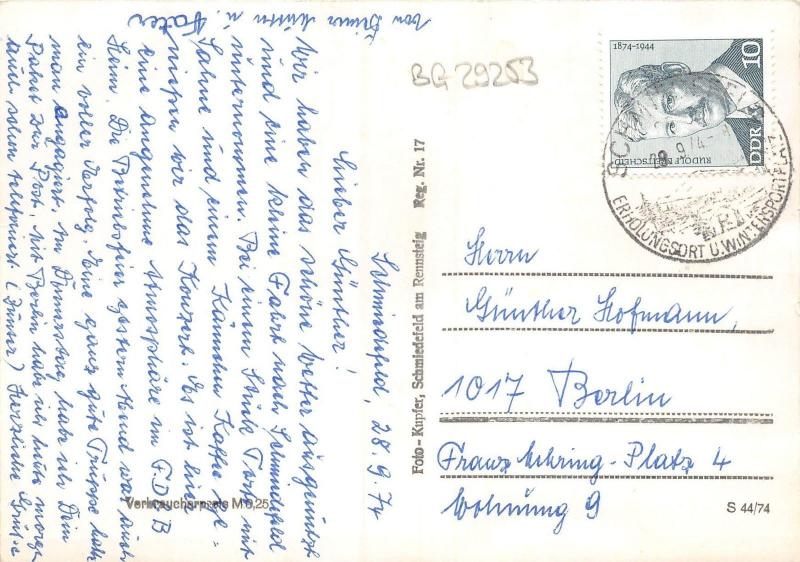 Schmiedefeld, 28.9.74
Lieber Günther!
Wir haben das schöne Wetter ausgenutzt
und eine kleine Fahrt nach Schmiedefeld
unternommen. Bei einem Stück Torte mit
Sahne und einem Kännchen Kaffee ge-
nießen wir das Konzert. Es ist hier
eine angenehme Atmosphäre im FDGB
Heim. Die Betriebsfeier gestern Abend war auch
ein voller Erfolg. Eine ganz gute Truppe hatte
man engagiert. Am Donnerstag habe ich Dein
Paket zur Post. Mit Berlin habe ich heute morgen
auch schon telefoniert Herzliche Grüße
von Deiner Mutter u. Vater
Verbraucherpreis M 0,25
Foto-Kupfer, Schmiedefeld am Rennsteig Reg. Nr. 17
BG 29253
1874-1944
10
DDR
RUDOLF BREITSCHEID
SCHMIEDEFELD
28.9.74
ERHOLUNGSORT U. WINTERSPORTPLATZ
Herrn
Günther Hofmann,
1017 Berlin
Franz Mehring-Platz 4
Wohnung 9
S 44/74